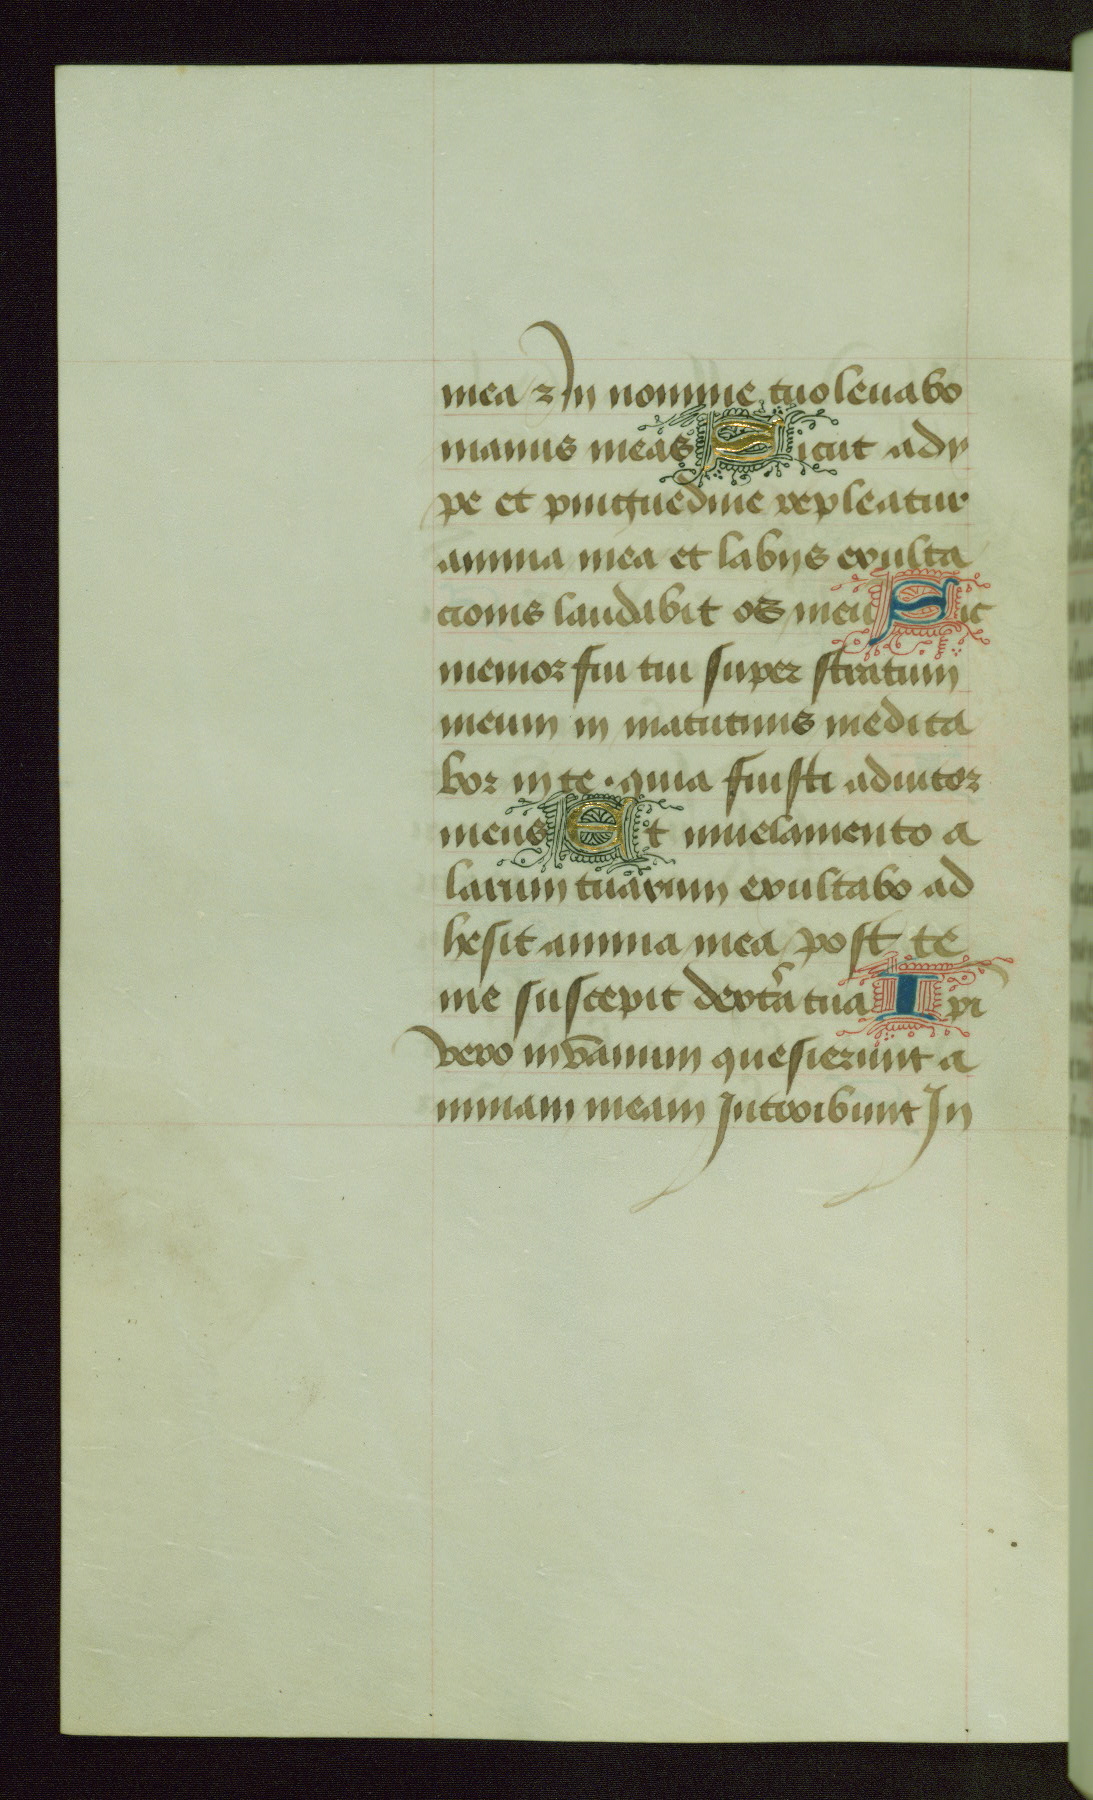 mea ⁊ In nomine tuo leuabo
manus meas Sicut ady
pe et pinguedine repleatur
anima mea et labijs exulta
cionis laudabit os meū Sic
memor fui tui super stratum
meum in matutinis medita
bor in te · quia fuisti adiutor
meus Et in uelamento a
larum tuarum exultabo ad
hesit anima mea post te
me suscepit dextra tua Ipi
vero in vanum quesierunt a
nimam meam Introibunt In